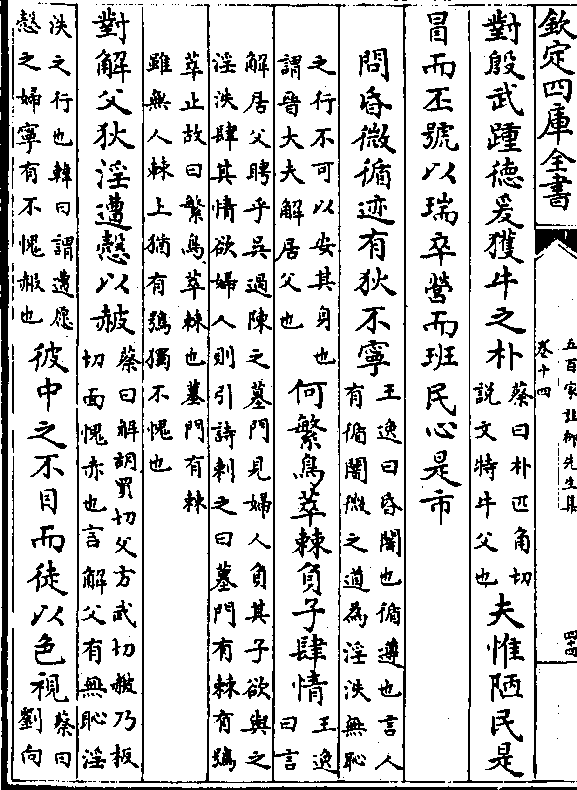 欽定四庫全書
五百家註柳先生集
卷十四
四十四
對殷武踵德爰獲牛之朴蔡曰朴匹角切
說文特牛父也夫惟陋民是
冒而丕號以瑞卒營而班民心是市
問昏微循迹有狄不寧王逸曰昏闇也循遵也言人
有循闇微之道為淫泆無恥
之行不可以安其身也
謂晉大夫解居父也何繁鳥萃棘負子肆情王逸
曰言
解居父聘乎吳過陳之墓門見婦人負其子欲與之
淫泆肆其情欲婦人則引詩刺之曰墓門有棘有鴞
萃止故曰繁鳥萃棘也墓門有棘
雖無人棘上猶有鴞獨不愧也
對解父狄淫遭愨以赧蔡曰解胡買切父方武切赧乃板
切面愧赤也言解父有無恥淫
泆之行也韓曰謂遭愿
愨之婦寧有不愧赧也彼中之不目而徒以色視蔡曰
劉向